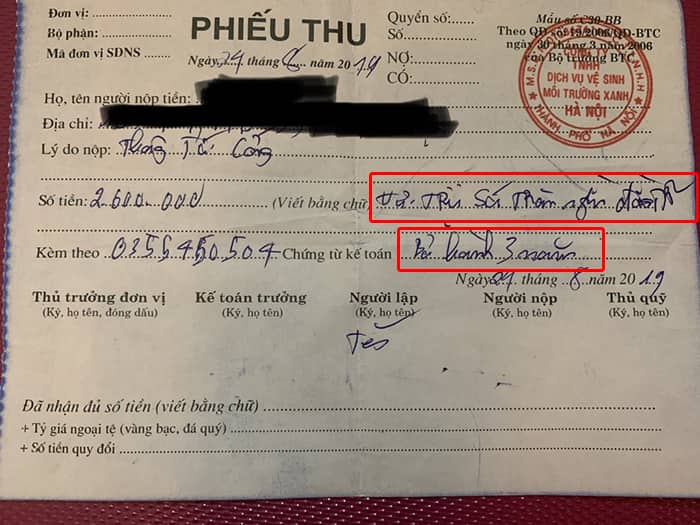 Đơn vị:
Bộ phận:
Mã đơn vị SDNS
PHIẾU THU
Ngày 24 tháng 8 năm 2019
Quyển số:
Số
NỢ:
CÓ:
Mẫu số C30-BB
Theo QĐ số 19/2006/QĐ-BTC
ngày 30 tháng 3 năm 2006
của Bộ trưởng BTC
CÔNG TY
TNHH
DỊCH VỤ VỆ SINH
MÔI TRƯỜNG XANH
HÀ NỘI
THÀNH PHỐ HÀ NỘI
Họ, tên người nộp tiền:
Địa chỉ:
Lý do nộp: Thông Tắc Cống
Số tiền: 2.600.000 (Viết bằng chữ)
Kèm theo 0355450504 Chứng từ kế toán Bảo hành 3 năm
Ngày 24 tháng 8 năm 2019
Thủ trưởng đơn vị
(Ký, họ tên, đóng dấu)
Kế toán trưởng
(Ký, họ tên)
Người lập
(Ký, họ tên)
Người nộp
(Ký, họ tên)
Thủ quỹ
(Ký, họ tên)
Đã nhận đủ số tiền (viết bằng chữ)
+ Tỷ giá ngoại tệ (vàng bạc, đá quý)
+ Số tiền quy đổi